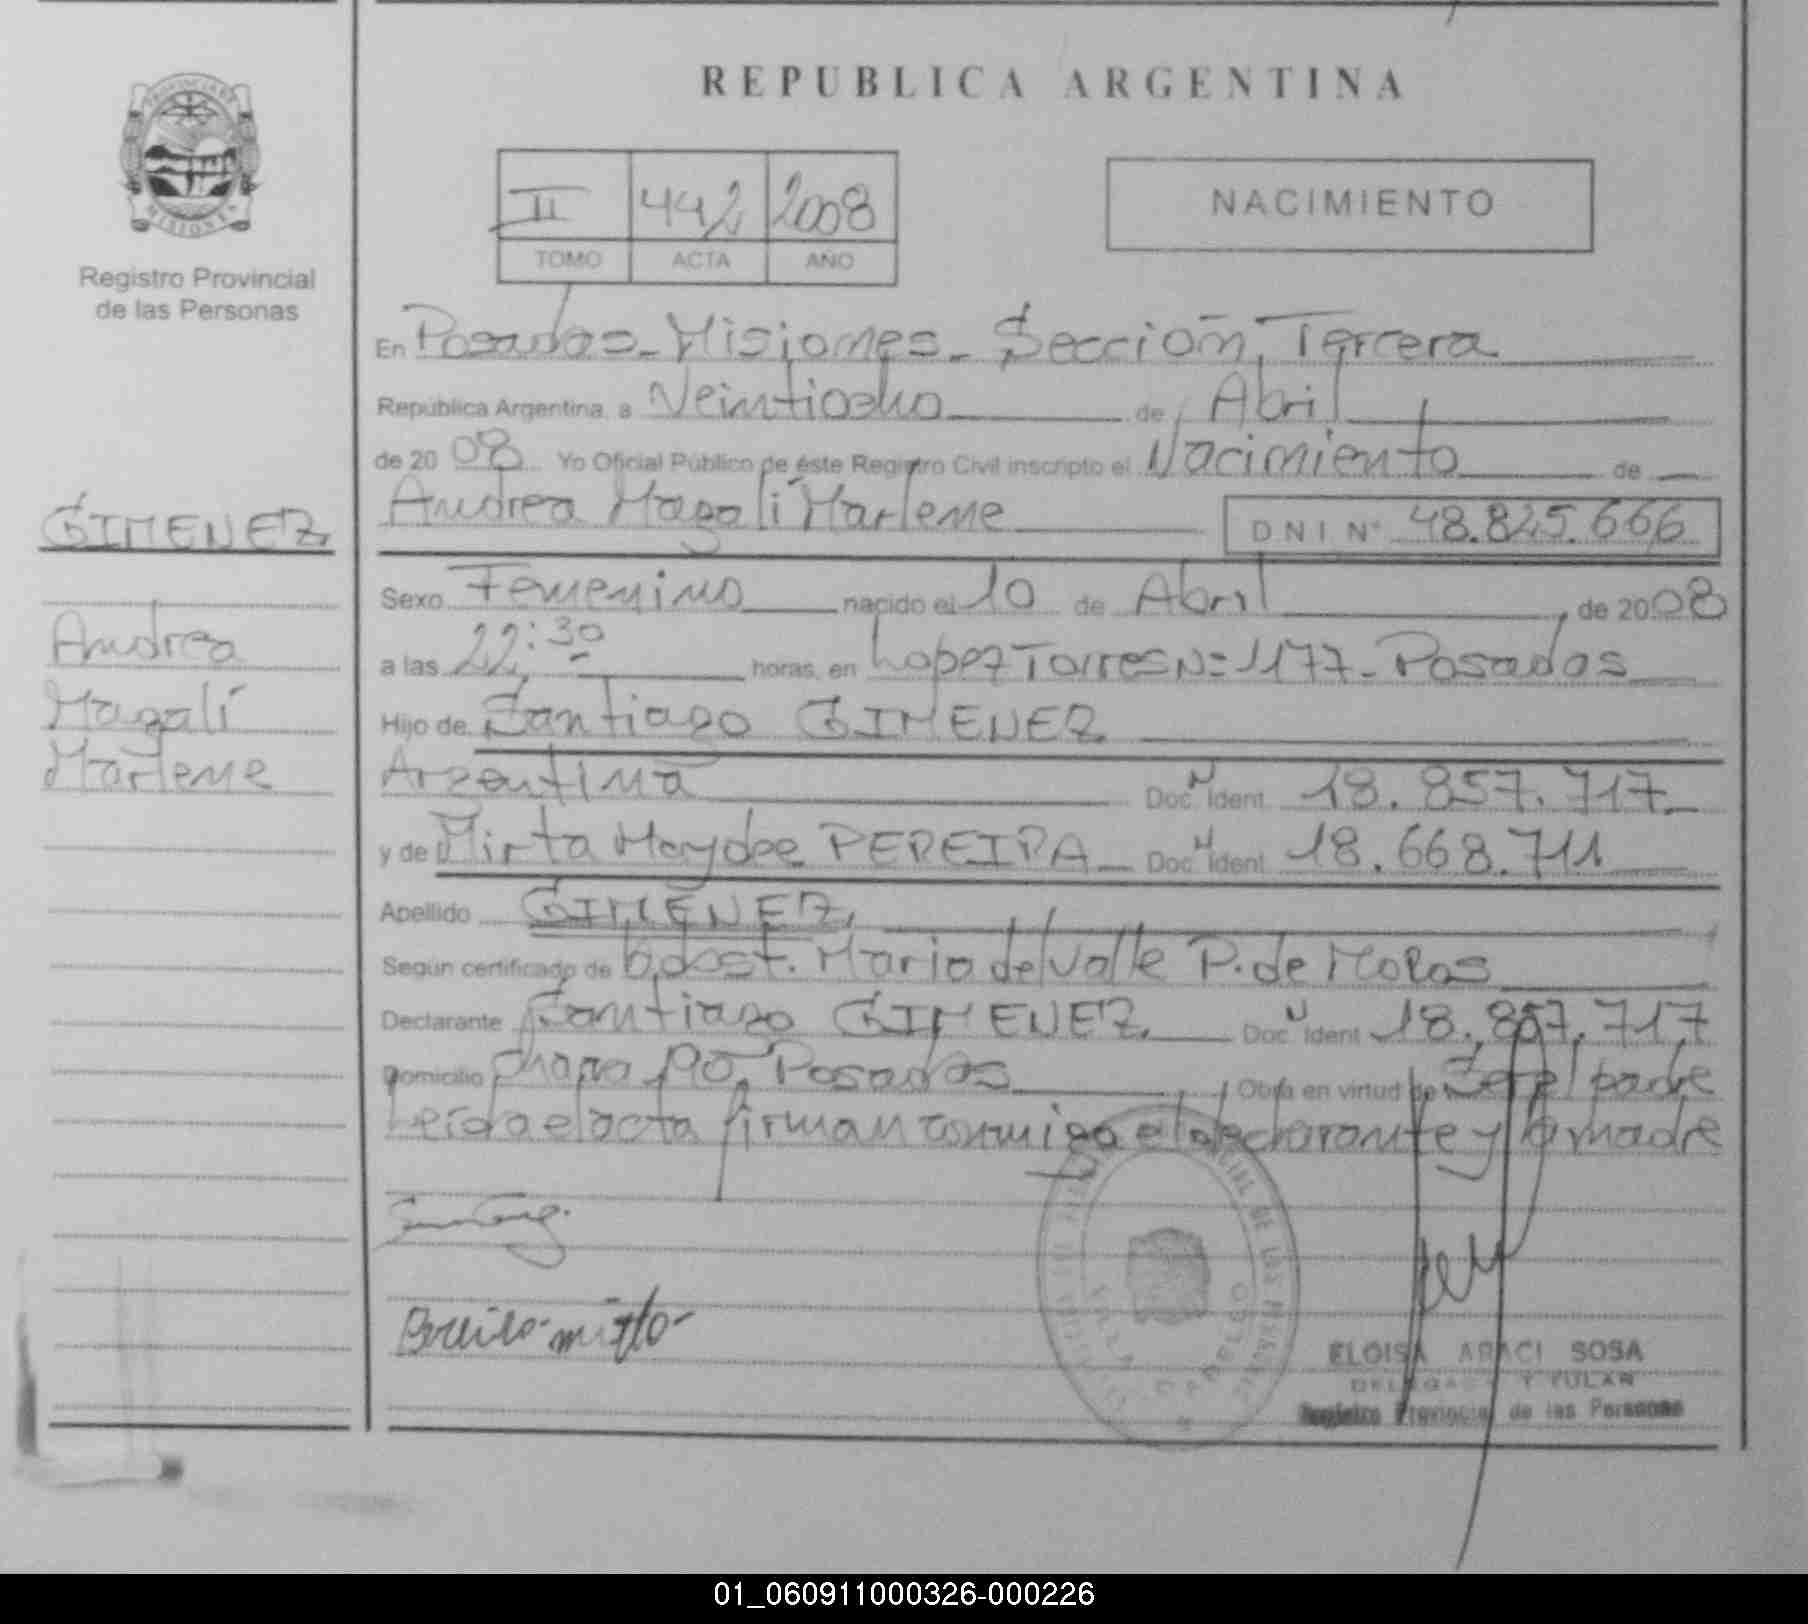 REPUBLICA ARGENTINA
PROVINCIA DE MISIONES
Registro Provincial
de las Personas
II 442 2008
TOMO ACTA AÑO
NACIMIENTO
En Posadas - Misiones - Sección Tercera
República Argentina, a Veintiocho de Abril
de 2008 Yo Oficial Público de éste Registro Civil inscripto el Nacimiento de
GIMENEZ
Andrea Magalí Marlene DNI Nº 48.825.666
Sexo Femenino nacido el 10 de Abril de 2008
Andrea
a las 22:30 horas, en Lopez Torres Nº 1177 - Posadas
Magalí
Hijo de Santiago GIMENEZ
Marlene
Argentina Doc. Ident. N 18.857.717
y de Mirta Haydee PEREIRA Doc. Ident. N 18.668.711
Apellido GIMENEZ
Según certificado de Obst. Maria del Valle P. de
Declarante Santiago GIMENEZ Doc. Ident. N 18.857.717
Domicilio chacra 190, Posadas Obra en virtud de Ser el padre
Leída el acta firman conmigo el declarante y la madre
ELOISA ARACI SOSA
Registro Provincial de las Personas
01_060911000326-000226